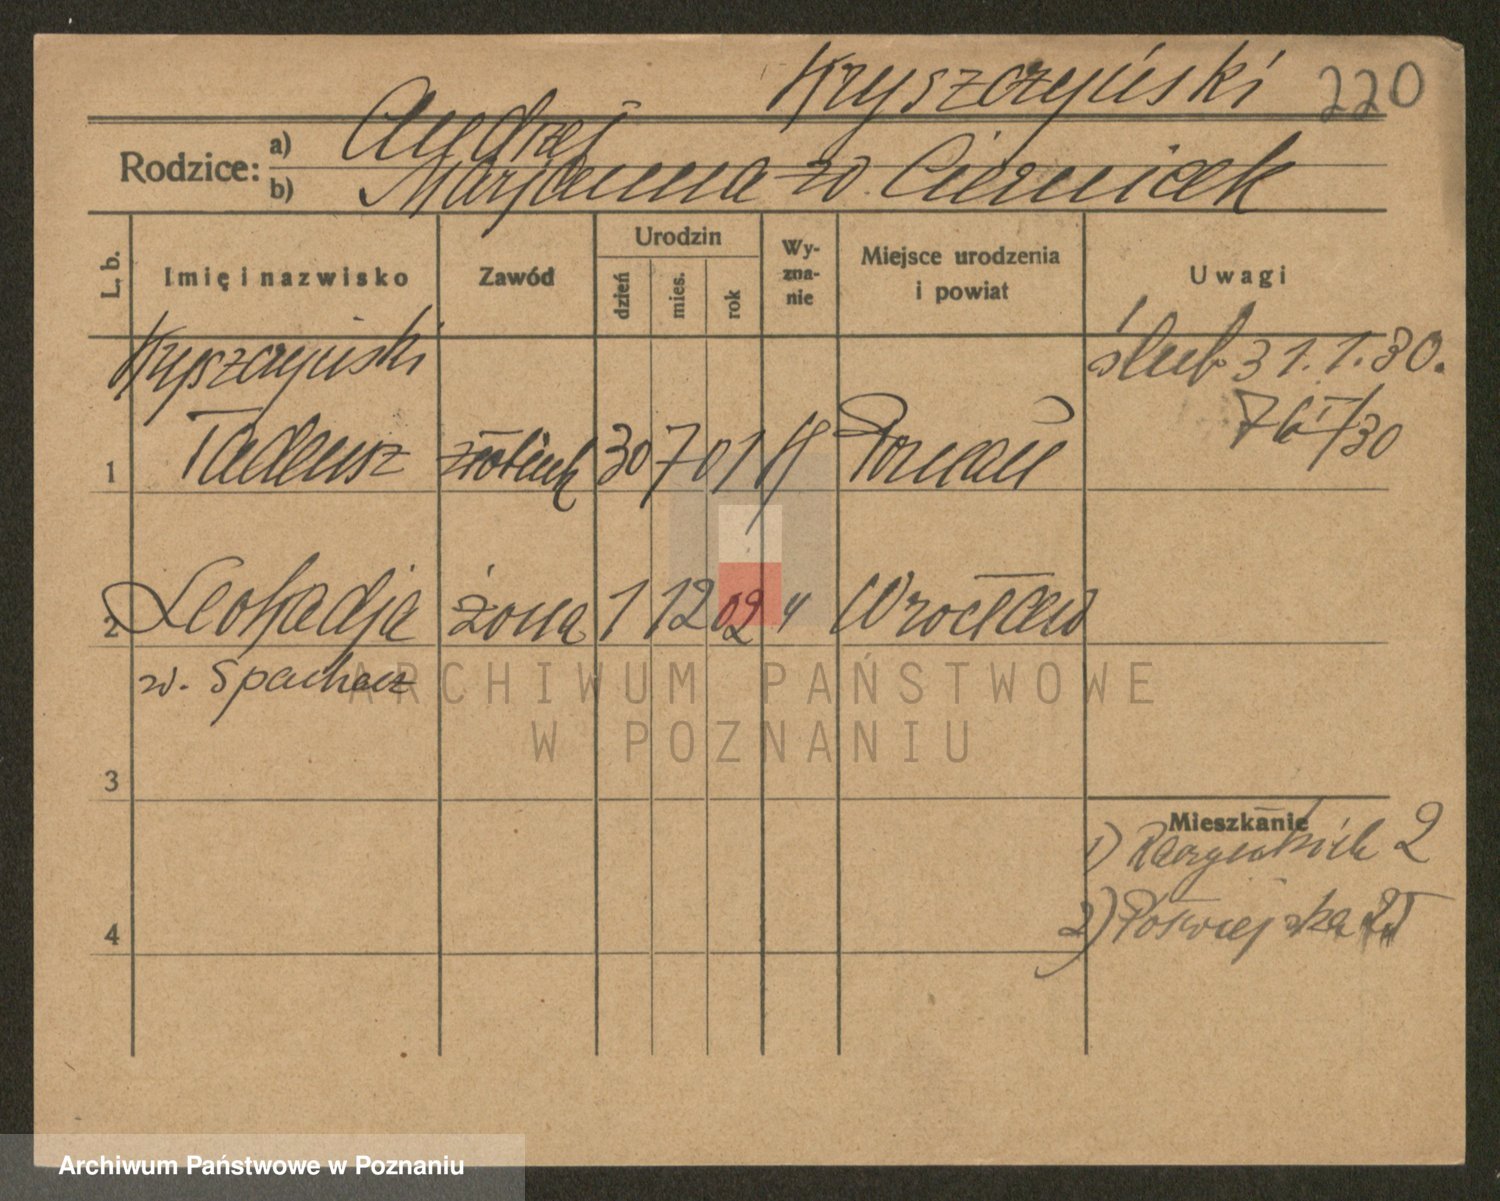 Kryszczyński 220
Rodzice: a) Andrzej
b) Marjanna zd. Ciernicek
L. b. Imię i nazwisko Zawód Urodzin dzień mies. rok Wy-zna-nie Miejsce urodzenia i powiat Uwagi
Kryszczyński ślub 31.1.30.
76 I/30
1 Tadeusz 30 7 01 Poznań
2 Leokadja żona 1 12 02 " Wrocław
ARCHIWUM PAŃSTWOWE
w. Spachacz
W POZNANIU
3
Mieszkanie
1) 2
2)
4
Archiwum Państwowe w Poznaniu